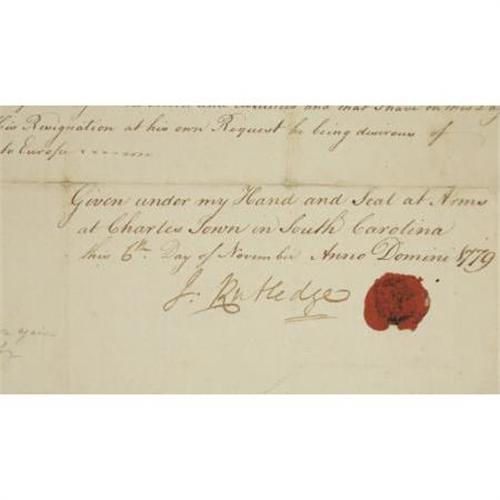 and that I have on this
his Resignation at his own Request he being desirous of
to Europe
Given under my Hand and Seal at Arms
at Charles Town in South Carolina
this 6th. Day of November Anno Domini 1779
J. Rutledge